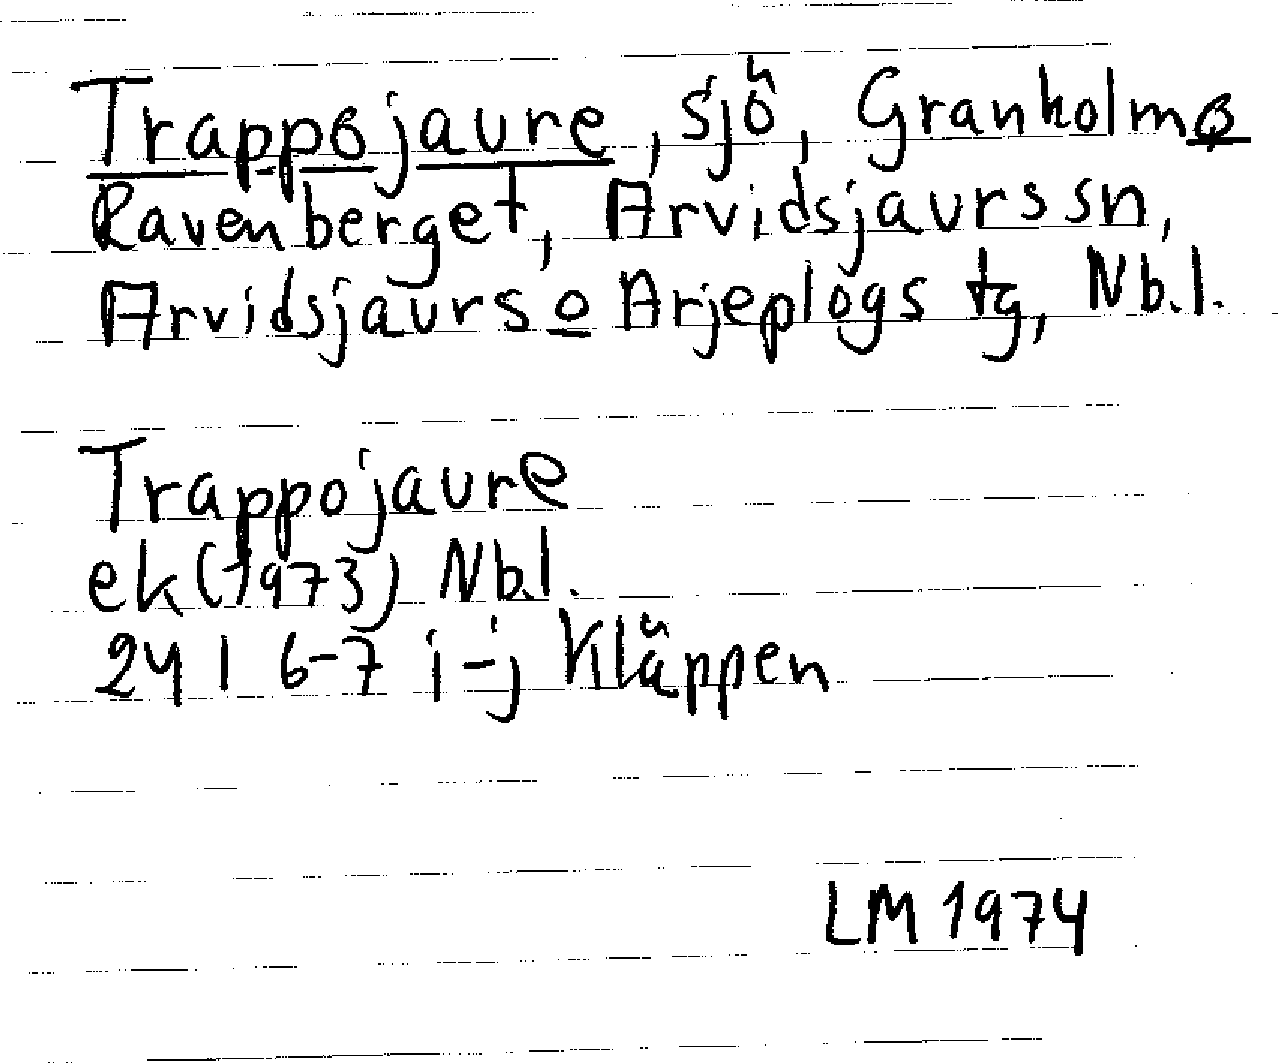 Trappojaure, sjö, Granholm o
Ravenberget, Arvidsjaurs sn,
Arvidsjaurs o Arjeplogs tg, Nb.l.
Trappojaure
ek (1973) Nb.l.
24 I 6-7 i-j Kläppen
LM 1974